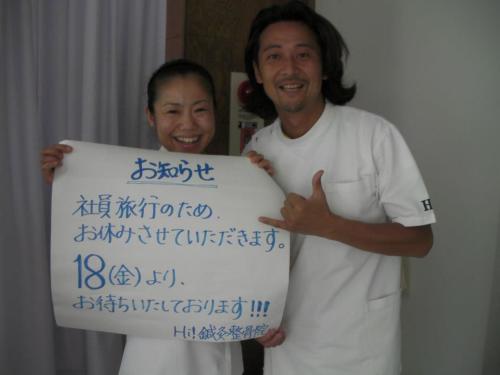 お知らせ
社員旅行のため、
お休みさせていただきます。
18(金)より、
お待ちいたしております!!!
Hi!鍼灸整骨院
H